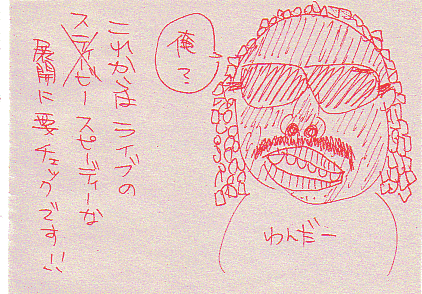 これからは ライブの
スピーディーな
展開に要チェックです!!
俺?
わんだー